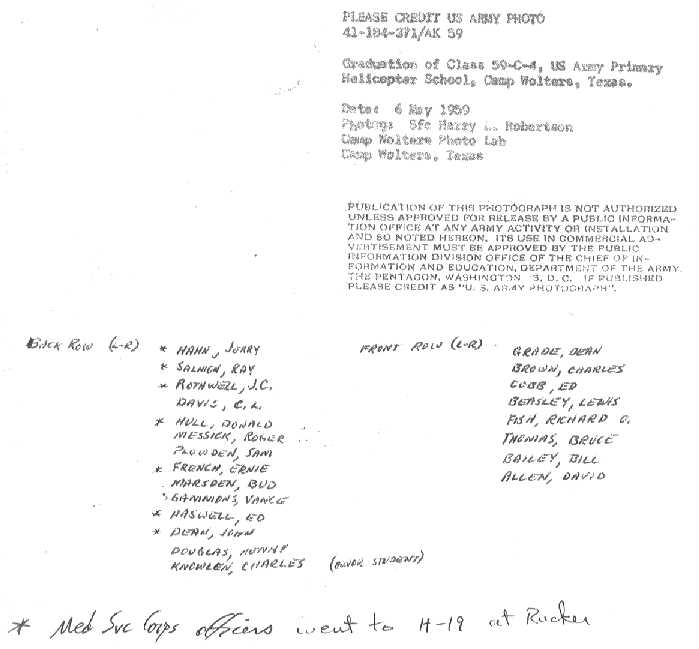 PLEASE CREDIT US ARMY PHOTO
41-184-371/AK 59
Graduation of Class 59-C-4, US Army Primary
Helicopter School, Camp Wolters, Texas.
Date: 6 May 1959
Photog: Sfc Harry L. Robertson
Camp Wolters Photo Lab
Camp Wolters, Texas
PUBLICATION OF THIS PHOTOGRAPH IS NOT AUTHORIZED
UNLESS APPROVED FOR RELEASE BY A PUBLIC INFORMA-
TION OFFICE AT ANY ARMY ACTIVITY OR INSTALLATION
AND SO NOTED HEREON. ITS USE IN COMMERCIAL AD-
VERTISEMENT MUST BE APPROVED BY THE PUBLIC
INFORMATION DIVISION OFFICE OF THE CHIEF OF IN-
FORMATION AND EDUCATION, DEPARTMENT OF THE ARMY,
THE PENTAGON, WASHINGTON D. C. IF PUBLISHED
PLEASE CREDIT AS "U. S. ARMY PHOTOGRAPH".
BACK ROW (L-R)
* HAHN, JERRY
* SALMON, RAY
* ROTHWELL, J.C.
DAVIS, C.L.
* HULL, DONALD
MESSICK, ROGER
PLOWDEN, SAM
* FRENCH, ERNIE
MARSDEN, BUD
GAMMONS, VANCE
* HASWELL, ED
* DEAN, JOHN
DOUGLAS,
KNOWLEN, CHARLES (HONOR STUDENT)
FRONT ROW (L-R)
GRABE, DEAN
BROWN, CHARLES
COBB, ED
BEASLEY, LEWIS
FISH, RICHARD O.
THOMAS, BRUCE
BAILEY, BILL
ALLEN, DAVID
* Med Svc Corps officers went to H-19 at Rucker